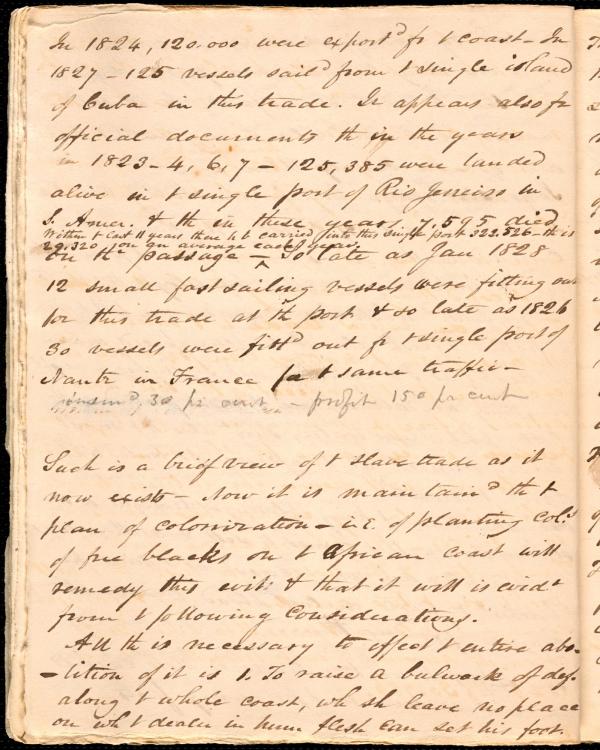 In 1824, 120.000 were exportd fr t coast - In
1827 - 125 vessels saild from t single island
of Cuba in this trade. It appears also fr
official documents th in the years
in 1823 - 4, 6, 7 - 125,385 were landed
alive in t single port of Rio Jeneiro in
S. Amer. & th in these years, 7,595 died
Within t last 11 years there h b carried into this single port 322.526 - th is
29.320 on an average each year.
on the passage - ^ So late as Jan 1828
12 small fast sailing vessels were fitting out
for this trade at th port & so late as 1826
30 vessels were fittd out fr t single port of
Nantz in France for t same traffic -
30 pr cent - profit 150 pr cent
Such is a brief view of t slave trade as it
now exists - Now it is maintaind th t
plan of colonization - i.e. of planting cols
of free blacks on t African coast will
remedy this evil: & that it will is evidt
from t following considerations.
All th is necessary to effect t entire abo-
-lition of it is 1. To raise a bulwark of def.
along t whole coast, wh sh leave no place
on wh t dealer in hum flesh can set his foot.